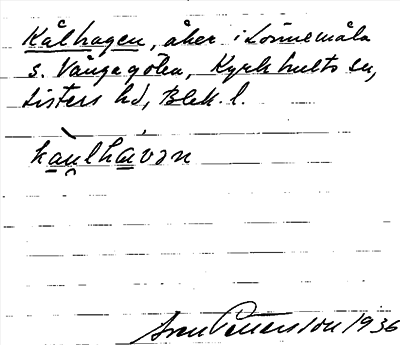 Kålhagen, åker i Lönnemåla
s. Vångagölen, Kyrkhults sn,
Listers hd, Blek. l.
kau̯lhavan
Sven Petersson 1936